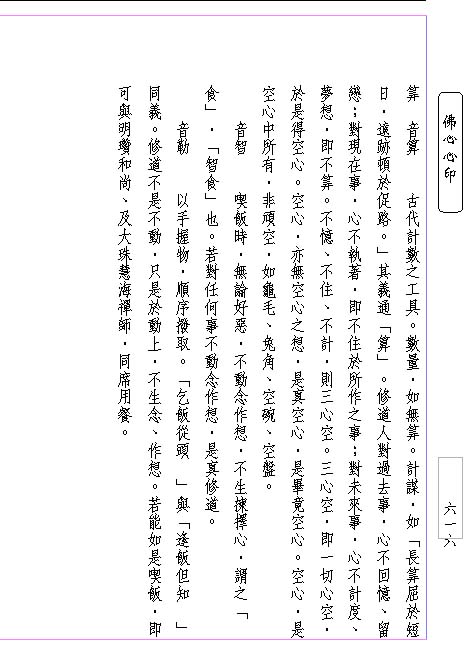 佛心心印
六一六
筭　音算　　古代計數之工具。數量，如無筭。計謀，如「長筭屈於短
日，遠跡頓於促路。」其義通「算」。修道人對過去事，心不回憶、留
戀；對現在事，心不執著，即不住於所作之事；對未來事，心不計度、
夢想，即不筭。不憶、不住、不計，則三心空。三心空，即一切心空，
於是得空心。空心，亦無空心之想，是真空心，是畢竟空心。空心，是
空心中所有，非頑空，如龜毛、兔角、空碗、空盤。
音智　　喫飯時，無論好惡，不動念作想，不生揀擇心，謂之「
食」，「智食」也。若對任何事不動念作想，是真修道。
音勒　　以手握物，順序撥取。「乞飯從頭　」與「逢飯但知　」
同義。修道不是不動，只是於動上，不生念、作想。若能如是喫飯，即
可與明瓚和尚、及大珠慧海禪師，同席用餐。